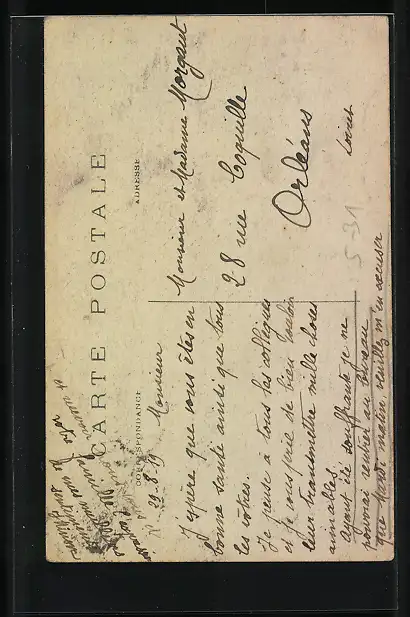 CARTE POSTALE
CORRESPONDANCE
ADRESSE
29-8-19
Monsieur
J'espère que vous êtes en
bonne santé ainsi que tous
les vôtres.
Je pense à tous les collègues
et je vous prie de bien vouloir
leur transmettre mille choses
aimables.
ayant été souffante je ne
pourrai rentrer au bureau
que Mardi matin, veuillez m'en excuser
Monsieur et Madame Morgant
28 rue Coquille
Orléans
Loiret
5-31